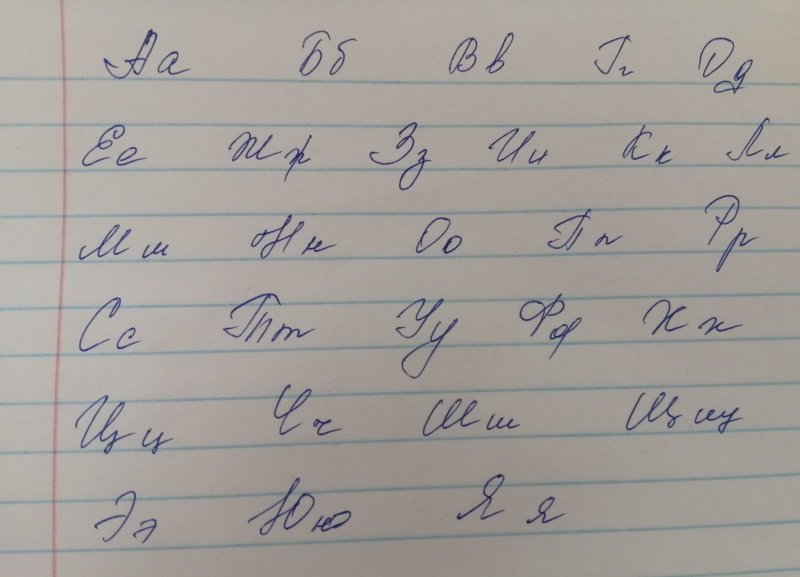 Аа Бб Вв Гг Дд
Ее Жж Зз Ии Кк Лл
Мм Нн Оо Пп Рр
Сс Тт Уу Фф Хх
Цц Чч Шш Щщ
Ээ Юю Яя